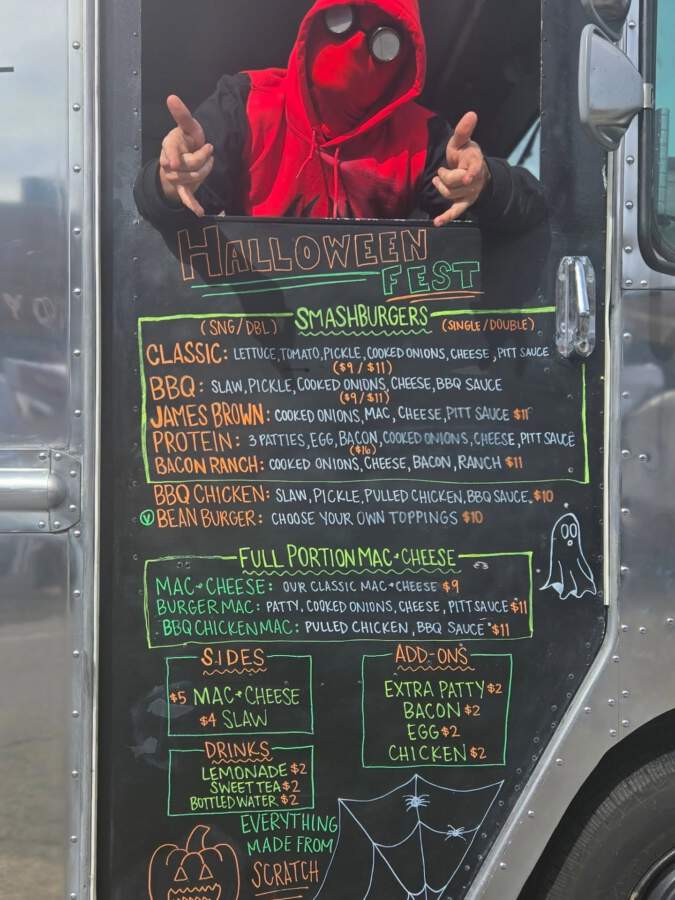 HALLOWEEN
FEST
(SNG/DBL) SMASHBURGERS (SINGLE/DOUBLE)
CLASSIC: LETTUCE, TOMATO, PICKLE, COOKED ONIONS, CHEESE, PITT SAUCE
($9 / $11)
BBQ: SLAW, PICKLE, COOKED ONIONS, CHEESE, BBQ SAUCE
($9/$11)
JAMES BROWN: COOKED ONIONS, MAC, CHEESE, PITT SAUCE $11
PROTEIN: 3 PATTIES, EGG, BACON, COOKED ONIONS, CHEESE, PITT SAUCE
($16)
BACON RANCH: COOKED ONIONS, CHEESE, BACON, RANCH $11
BBQ CHICKEN: SLAW, PICKLE, PULLED CHICKEN, BBQ SAUCE. $10
V BEAN BURGER: CHOOSE YOUR OWN TOPPINGS $10
FULL PORTION MAC+CHEESE
MAC+CHEESE: OUR CLASSIC MAC+CHEESE $9
BURGER MAC: PATTY, COOKED ONIONS, CHEESE, PITT SAUCE $11
BBQ CHICKEN MAC: PULLED CHICKEN, BBQ SAUCE $11
SIDES
$5 MAC+CHEESE
$4 SLAW
ADD-ONS
EXTRA PATTY $2
BACON $2
EGG $2
CHICKEN $2
DRINKS
LEMONADE $2
SWEET TEA $2
BOTTLED WATER $2
EVERYTHING
MADE FROM
SCRATCH